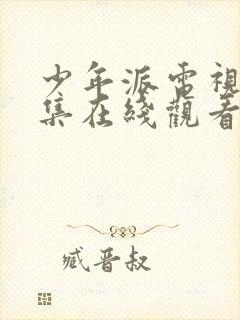 少年派電視
集在綫觀看
臧晋叔